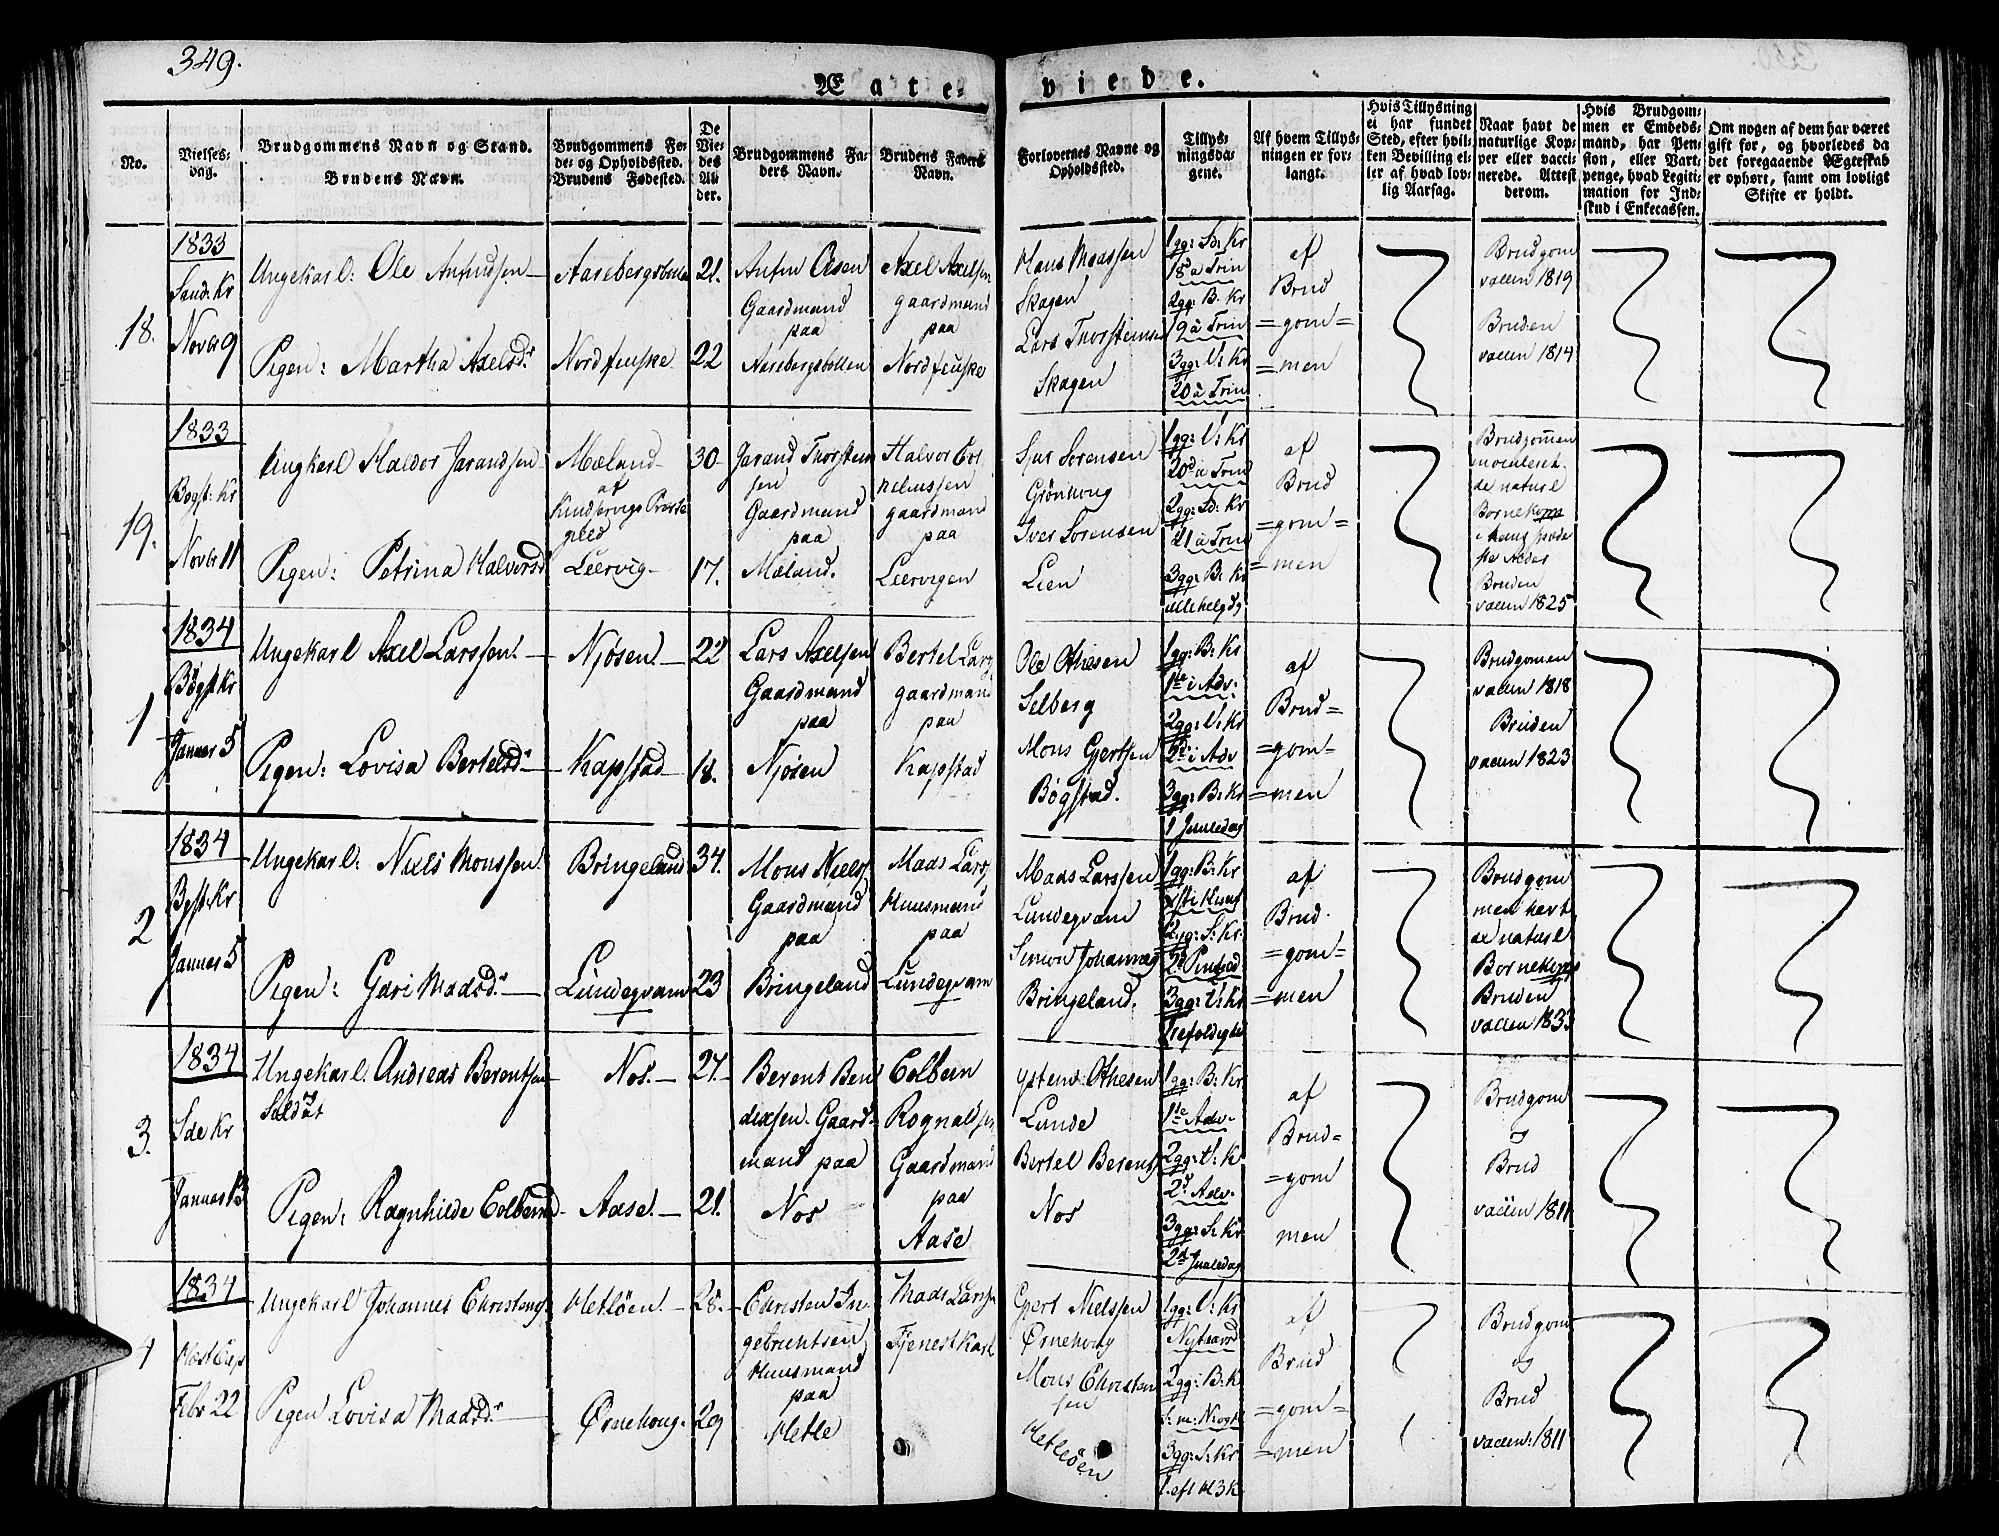 349.
Ægte-
viede.
No.
Vielses-
dag.
Brudgommens Navn og Stand.
Brudens Navn.
Brudgommens Fø-
de- og Opholdssted.
Brudens Fødested.
De
Vie-
des
Al-
der.
Brudgommens Fa-
ders Navn.
Brudens Faders
Navn.
Forlovernes Navne og
Opholdssted.
Tillys-
ningsda-
gene.
Af hvem Tillys-
ningen er for-
langt.
Hvis Tillysning
ei har fundet
Sted, efter hvil-
ken Bevilling el-
ler af hvad lov-
lig Aarsag.
Naar havt de
naturlige Kop-
per eller vacci-
nerede. Attest
derom.
Hvis Brudgom-
men er Embeds-
mand, har Pen-
sion, eller Vart-
penge, hvad Legiti-
mation for Ind-
skud i Enkecassen.
Om nogen af dem har været
gift før, og hvorledes da
det foregaaende Ægteskab
er ophørt, samt om lovligt
Skifte er holdt.
18.
1833
Sand: Kr
Novbr 9
Ungekarl: Ole Anfindsen
Pigen: Martha Axelsd.
Aasebergsbotten
Nordfenske
21.
22
Anfin Olsen
Gaardmand
paa
Aasebergsbotten
Axel Axelsen
gaardmand
paa
Nordfenske
Hans Madssen
Skagen
Lars Thorsteinsen
Skagen
1gg: Sd: Kr
18 a Trin
2gg: B. Kr
19 a Trin
3gg: V: Kr
20 a Trin
af
Brud
=gom=
=men
Brudgom
vaccn 1819
Bruden
vaccn 1814
19.
1833
Bøgst: Kr
Novbr 11
Ungkarl Haldor Jarandsen
Pigen: Petrina Halvorsd
Mæland
af
Kindservigs Præste
gield
Leervig
30
17.
Jarand Thorstein
sen
Gaardmand
paa
Mæland.
Halvor Cor
neliussen
gaardmand
paa
Leervigen
Siur Sorensen
Grönhoug
Iver Sorensen
Lien
1gg: V: Kr
20d a Trin
2gg: Sd: Kr
21 a Trin
3gg: B: Kr
Allehelgdg
af
Brud
=gom=
=men
Brudgomen
de naturl
Bornekop
Bruden
vaccn 1825
1
1834
Bøgst Kr
Januar 5
Ungekarl Axel Larssen
Pigen: Lovisa Bertelsd.
Njösen
Kapstad
22
18.
Lars Axelsen
Gaardmand
paa
Njösen
Bertel Lars
gaardmand
paa
Kapstad
Ole Othesen
Selberg
Mons Gjertsen
Bøgstad.
1gg: B: Kr
1te i Adv:
2gg: V: Kr
2d: i Adv
3gg: B: Kr
1 Juuledag
af
Brud=
=gom=
=men
Brudgomen
vaccn 1818
Bruden
vaccn 1823
2
1834
Bgst. Kr
Januar 5
Ungekarl: Niels Monssen
Pigen: Gari Madsd.
Bringeland
Lundeqvam
34.
23
Mons Niels
Gaardmand
paa
Bringeland
Mads Lars
Huusmand
paa
Lundeqvam
Mads Larssen
Lundeqvam
Simon Johannes
Bringeland.
1gg: B: Kr
2gg: S: Kr.
2d Pintsed
3gg: V: Kr
Trefoldighd
af
Brud
=gom=
=men
Brudgom
men havt
de naturl
Bornekop
Bruden
vaccn 1833
3.
1834
Sde Kr
Januar 13
Ungekarl: Andreas Berentsen
Soldat
Pigen: Ragnhilde Colbensd
Nos.
Aase.
27.
21.
Berent Ben
dixsen. Gaard-
mand paa
Nos
Colbein
Rognalsen
Gaardmand
paa
Aase
Ystens Othesen
Lunde
Bertel Berents
Nos
1gg: B: Kr
1te Adv-
2gg: V: K
2d Adv-
3gg: S: Kr
2d Juuledag
af
Brud=
=gom
men
Brudgom
og
Brud
vaccn 1811
4
1834
Febr 22
Ungekarl Johannes Christens
Pigen Lovisa Madsd.
Hetlöen.
Ørnehoug.
28.
29
Christen In-
gebrichtsen
Huusmand
paa
Hetle
Mads Larsen
Tjenestkarl
Gjert Nielssen
Ørnehoug
Mons Christen
sen
Hetlöen
1gg: V: Kr
Nytaarsd
2gg: B: K
3gg: S: Kr
1. eft H3K
af
Brud
=gom=
=men
Brudgom
og
Brud
vaccn: 1811